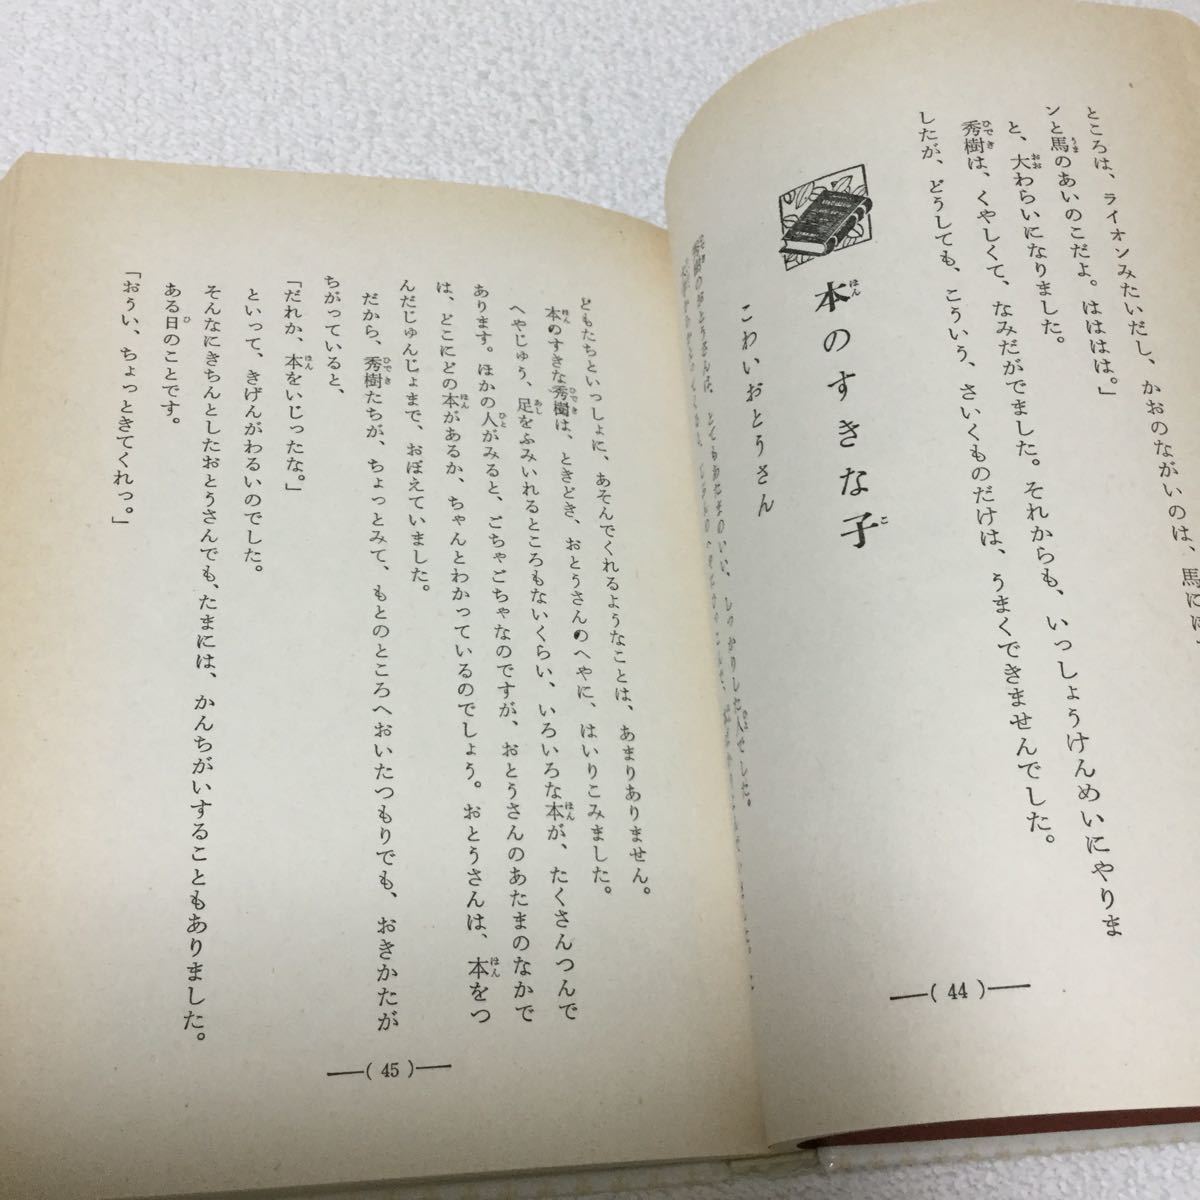 ところは、ライオンみたいだし、かおのながいのは、馬には、
ンと馬のあいのこだよ。はははは。」
と、大わらいになりました。
秀樹は、くやしくて、なみだがでました。それからも、いっしょうけんめいにやりま
したが、どうしても、こういう、さいくものだけは、うまくできませんでした。
本のすきな子
こわいおとうさん
秀樹のおとうさんは、とてもあたまのいい、しっかりした人でした。
—( 44 )—
どもたちといっしょに、あそんでくれるようなことは、あまりありません。
本のすきな秀樹は、ときどき、おとうさんのへやに、はいりこみました。
へやじゅう、足をふみいれるところもないくらい、いろいろな本が、たくさんつんで
あります。ほかの人がみると、ごちゃごちゃなのですが、おとうさんのあたまのなかで
は、どこにどの本があるか、ちゃんとわかっているのでしょう。おとうさんは、本をつ
んだじゅんじょまで、おぼえていました。
だから、秀樹たちが、ちょっとみて、もとのところへおいたつもりでも、おきかたが
ちがっていると、
「だれか、本をいじったな。」
といって、きげんがわるいのでした。
そんなにきちんとしたおとうさんでも、たまには、かんちがいすることもありました。
ある日のことです。
「おうい、ちょっときてくれっ。」
—( 45 )—